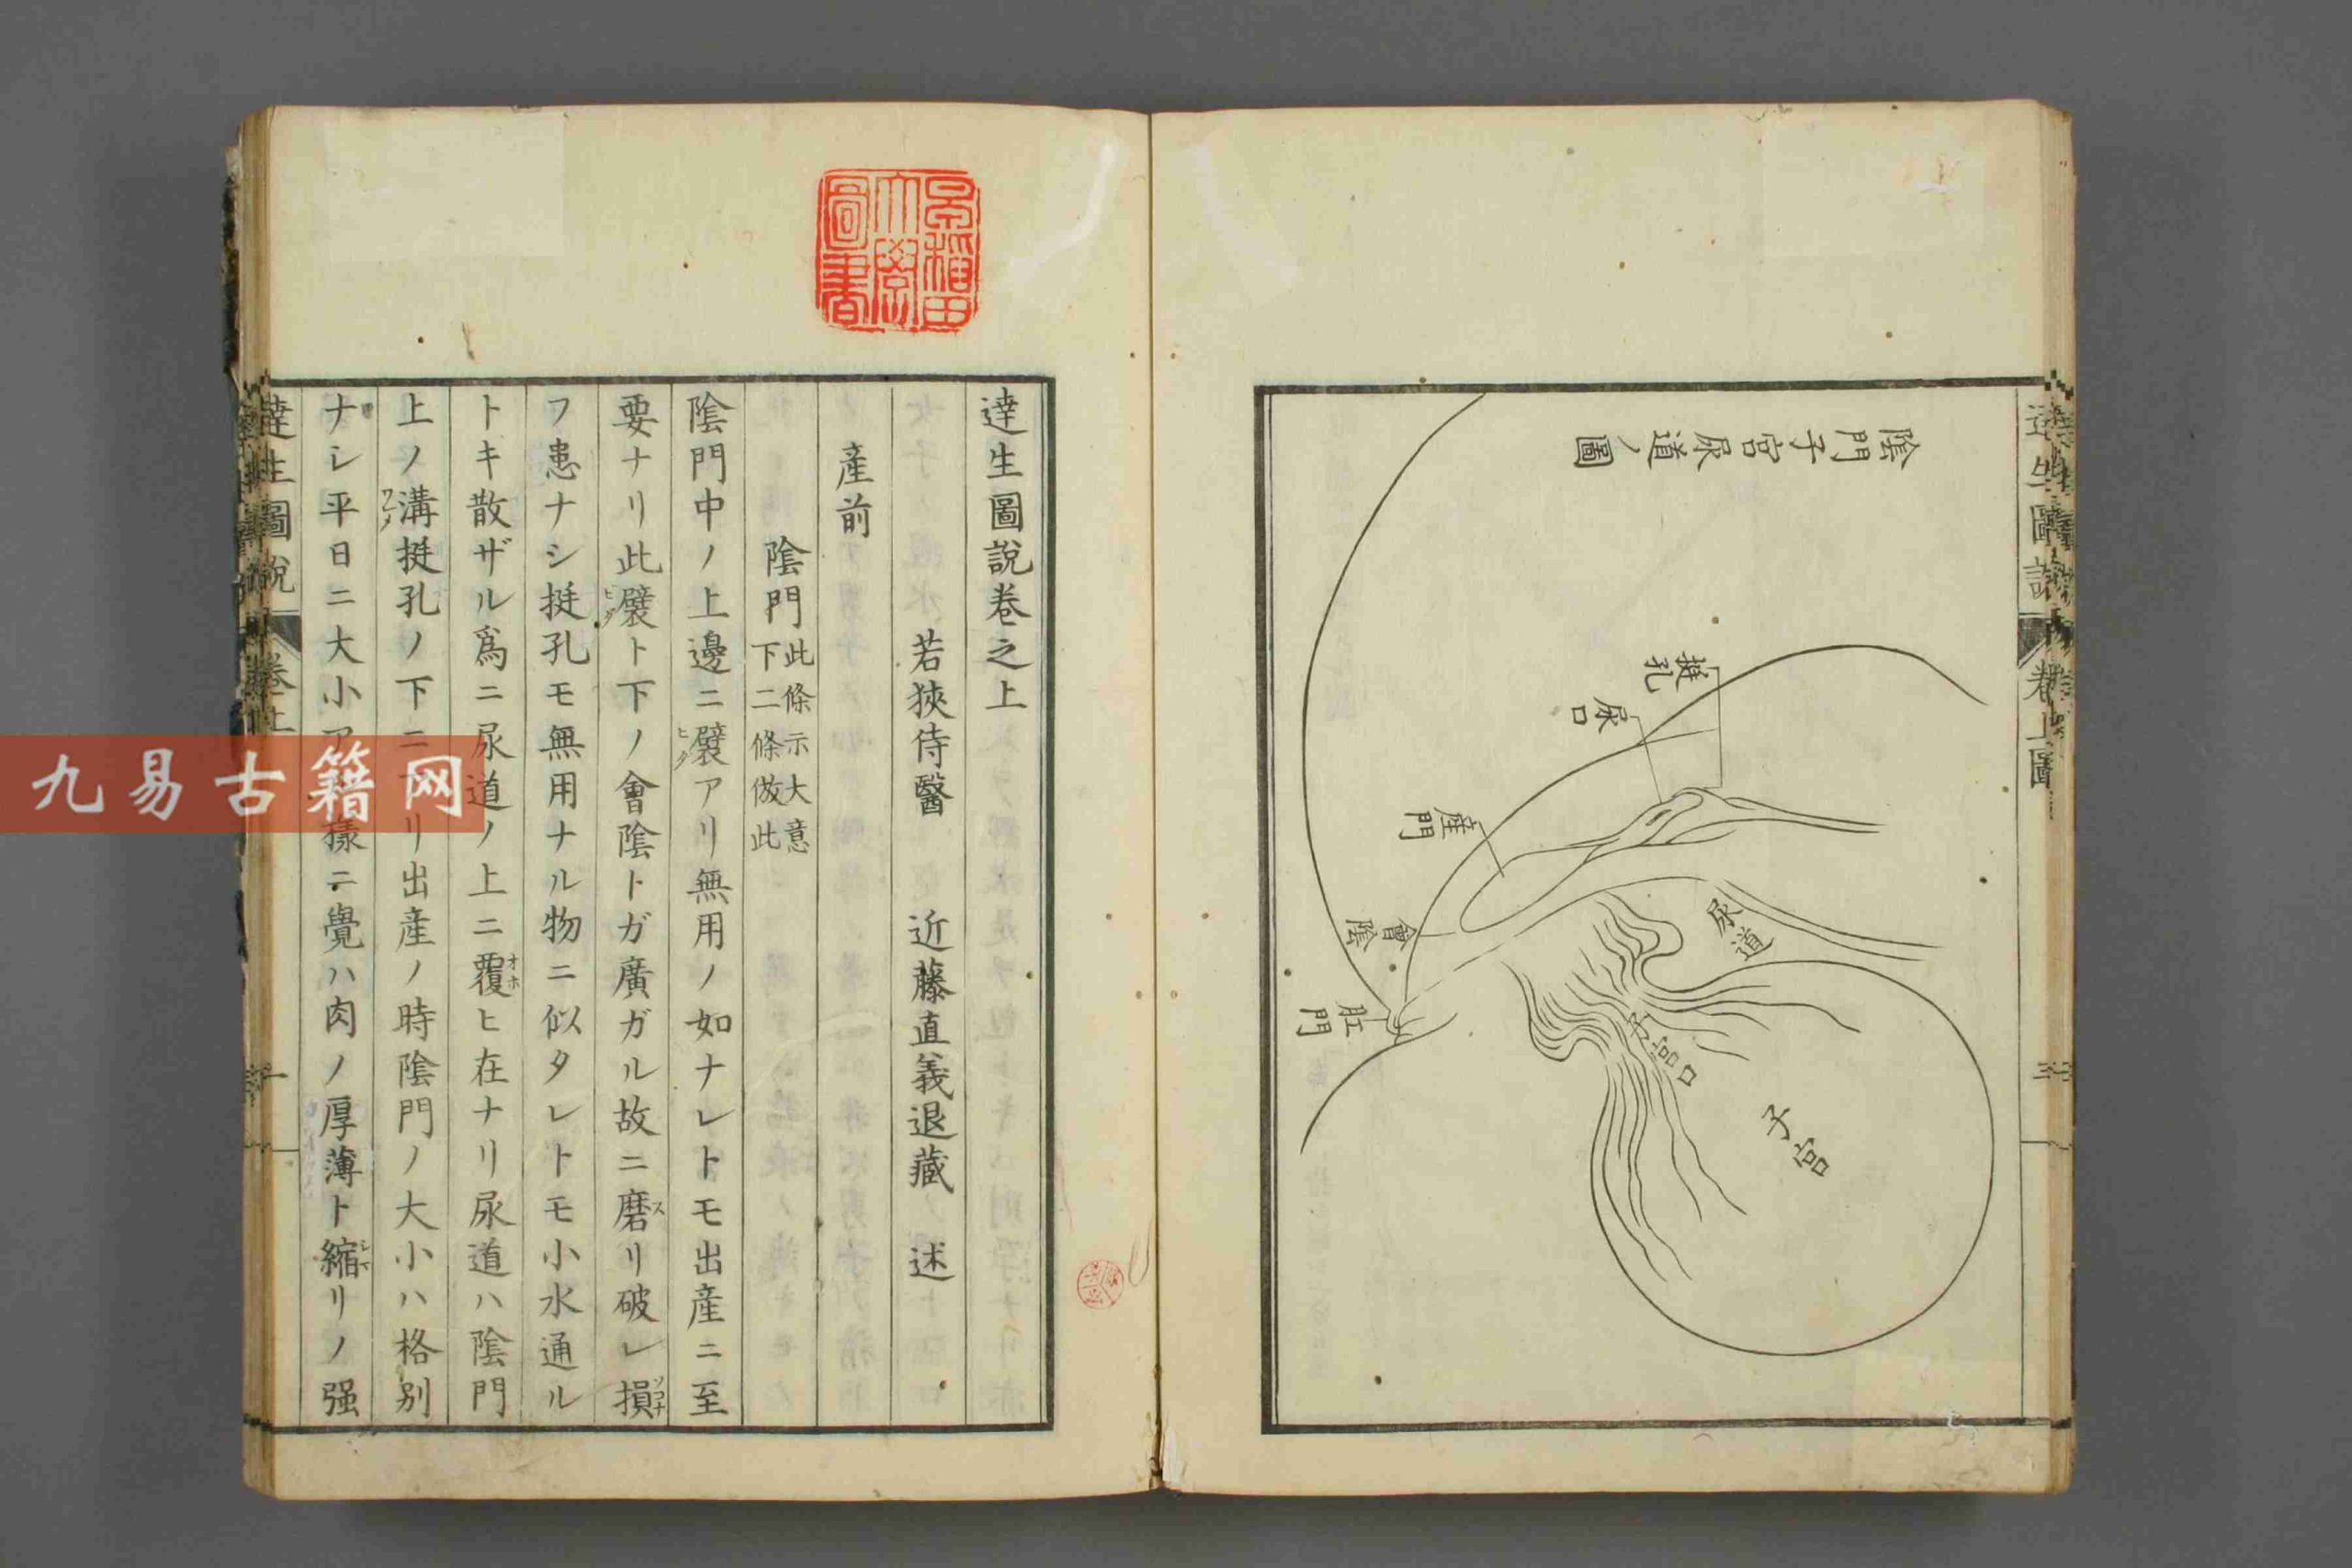 陰門子宮尿道ノ圖
挺孔
尿口
產門
會陰
肛門
尿道
子宮口
子宮
早稲田大學圖書
達生圖說卷之上
若狹侍醫 近藤直義退藏 述
產前
陰門 此條示大意下二條倣此
陰門中ノ上邊ニ襞ヒダアリ無用ノ如ナレトモ出産ニ至
要ナリ此襞ヒダト下ノ會陰トガ廣ガル故ニ磨スリ破レ損ソコナ
フ患ナシ挺孔モ無用ナル物ニ似タレトモ小水通ル
トキ散ザル爲ニ尿道ノ上ニ覆オホヒ在ナリ尿道ハ陰門
上ノ溝挺孔ノ下ニ リ出産ノ時陰門ノ大小ハ格别
ナシ平日ニ大小 樣ニ覺ハ肉ノ厚薄ト縮リノ强
達生圖說 卷上
九易古籍网